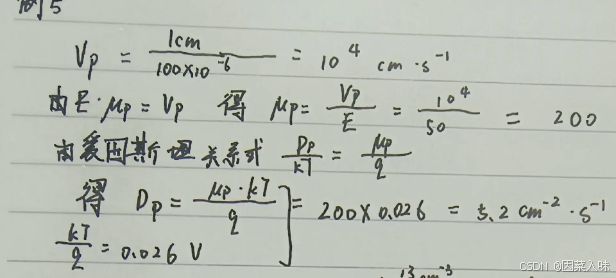 例5
Vp = 1cm / 100×10⁻⁶ = 10⁴ cm·s⁻¹
由E·μp = Vp 得 μp = Vp / E = 10⁴ / 50 = 200
由爱因斯坦关系式 Dp / kT = μp / q
得 Dp = μp·kT / q = 200×0.026 = 5.2 cm⁻²·s⁻¹
kT / q = 0.026 V
13 cm⁻³
CSDN @因菜入味